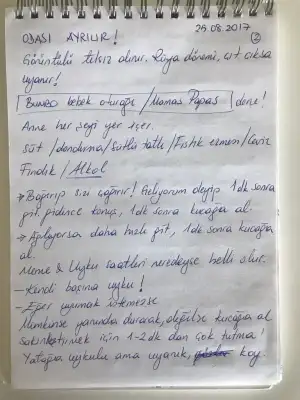 29.08.2017
ODASI AYRILIR!
②
Görüntülü telsiz alınır. Rüya dönemi, çıt çıksa
uyanır!
Bumbo bebek oturağı / Mamas Papas dene!
Anne her şeyi yer içer.
Süt / dondurma / Sütlü tatlı / Fıstık ezmesi / Ceviz
Fındık / Alkol
→ Bağırıp sizi çağırır! Geliyorum deyip 1dk sonra
git. gidince konuş, 1dk sonra kucağa al.
→ Ağlıyorsa daha hızlı git, 1dk sonra kucağa
al.
Meme & Uyku saatleri neredeyse belli olur.
- Kendi başına uyku!
- Eğer uyumak istemezse
Mümkünse yanında duracak, değilse kucağa al
sakinleştirmek için 1-2dk dan çok tutma!
Yatağa uykulu ama uyanık, koy.